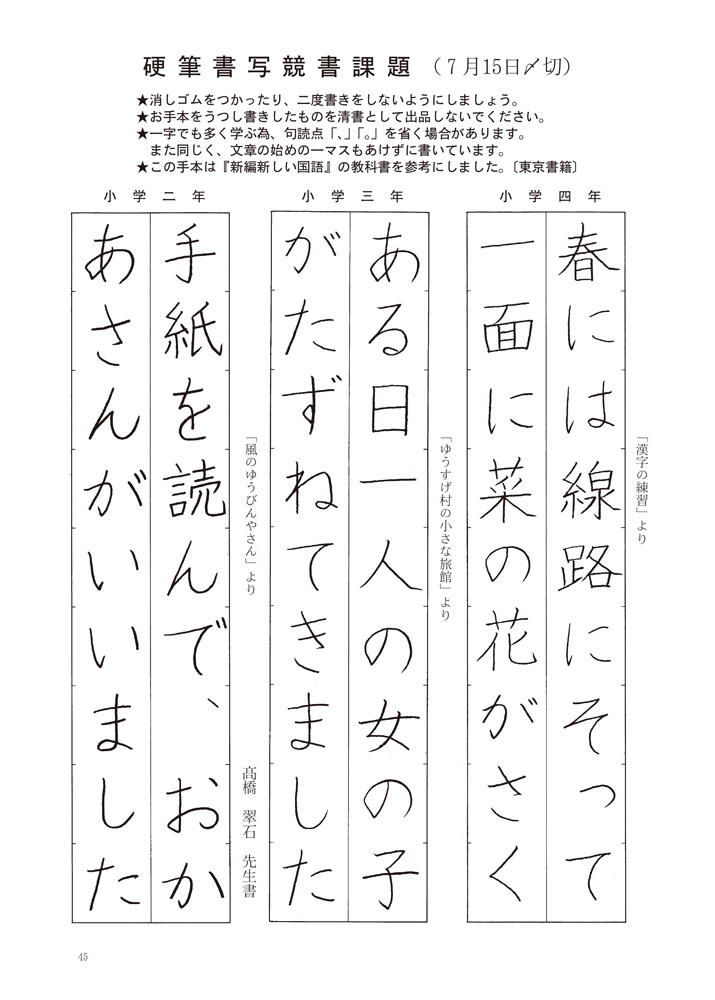 硬筆書写競書課題（７月15日〆切）
★消しゴムをつかったり、二度書きをしないようにしましょう。
★お手本をうつし書きしたものを清書として出品しないでください。
★一字でも多く学ぶ為、句読点「、」「。」を省く場合があります。
また同じく、文章の始めの一マスもあけずに書いています。
★この手本は『新編新しい国語』の教科書を参考にしました。〔東京書籍〕
小学四年
「漢字の練習」より
春には線路にそって
一面に菜の花がさく
小学三年
「ゆうすげ村の小さな旅館」より
ある日一人の女の子
がたずねてきました
小学二年
「風のゆうびんやさん」より
手紙を読んで、おか
あさんがいいました
髙橋　翠石　先生書
45